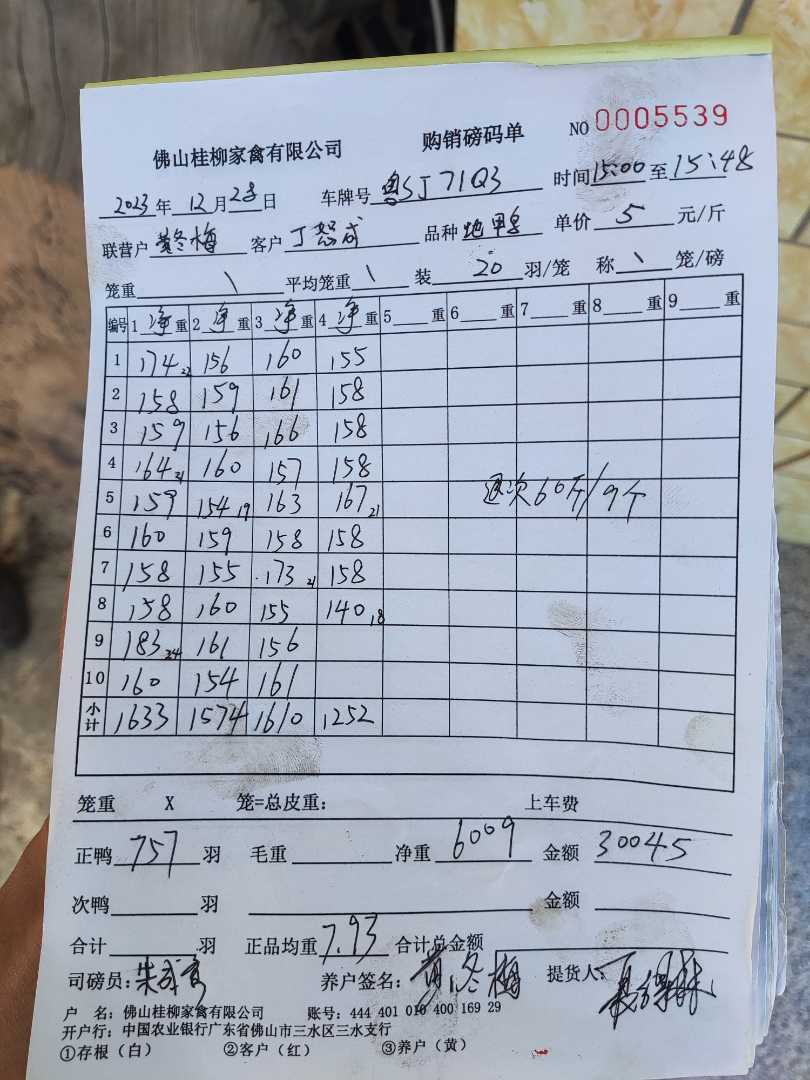 佛山桂柳家禽有限公司 购销磅码单 NO 0005539
2023 年 12 月 28 日 车牌号 粤SJ71Q3 时间 15:00 至 15:48
联营户 黄冬梅 客户 丁恕成 品种 地甲鸟 单价 5 元/斤
笼重 \ 平均笼重 \ 装 20 羽/笼 称 \ 笼/磅
编号 1 净 重 2 净 重 3 净 重 4 净 重 5 重 6 重 7 重 8 重 9 重
1 174 22 156 160 155
2 158 159 161 158
3 159 156 166 158
4 164 21 160 157 158
5 159 154 19 163 167 21 次60斤/9个
6 160 159 158 158
7 158 155 173 21 158
8 158 160 155 140 18
9 183 24 161 156
10 160 154 161
小计 1633 1574 1610 1252
笼重 X 笼=总皮重: 上车费
正鸭 757 羽 毛重 净重 6009 金额 30045
次鸭 羽 金额
合计 羽 正品均重 7.93 合计总金额
司磅员: 朱成 养户签名: 黄冬梅 提货人:
户 名: 佛山桂柳家禽有限公司 账号: 444 401 010 400 169 29
开户行: 中国农业银行广东省佛山市三水区三水支行
①存根(白) ②客户(红) ③养户(黄)